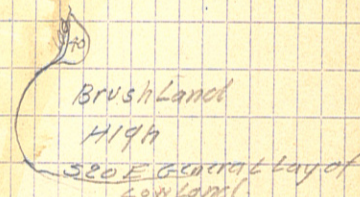 40
Brush Land
High
S20E General Lay of
Low Land